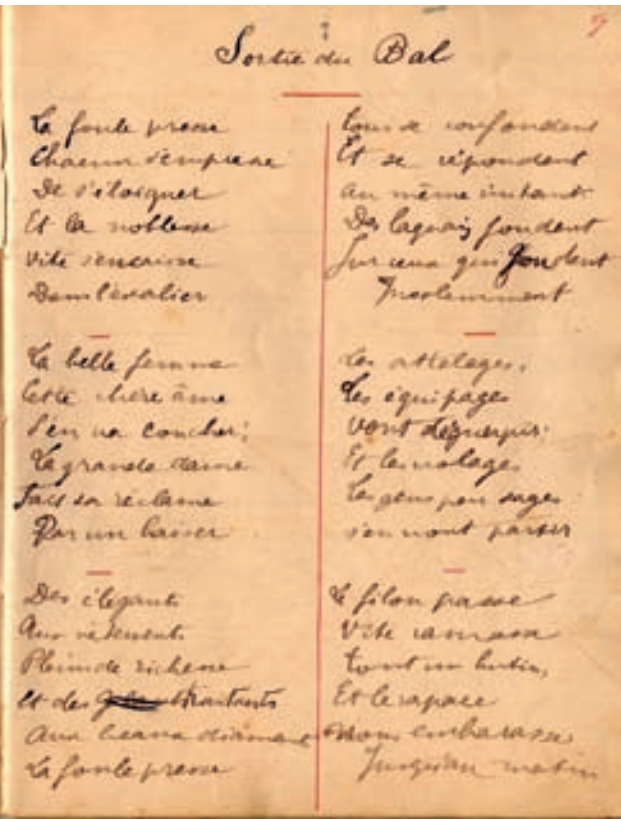 9
Sortie du Bal
La foule presse
Chacun s'empresse
De s'éloigner
Et la noblesse
Vite
Dans l'escalier
La belle femme
Cette chère âme
S'en va coucher;
La grande dame
Fait sa réclame
Par un baiser
Des élégants
Aux vêtements
Plein de richesse
Et des
Aux beaux diamants
La foule presse
Tous se confondent
Et se répondent
Au même instant
Des laquais fondent
Sur ceux qui
Insolemment
Les attelages,
Les équipages
Vont déguerpir:
Et les volages
Les gens peu sages
S'en vont partir
Le filou passe
Vite ramasse
Tout un butin,
Et le rapace
Nous embarasse
Jusqu'au matin